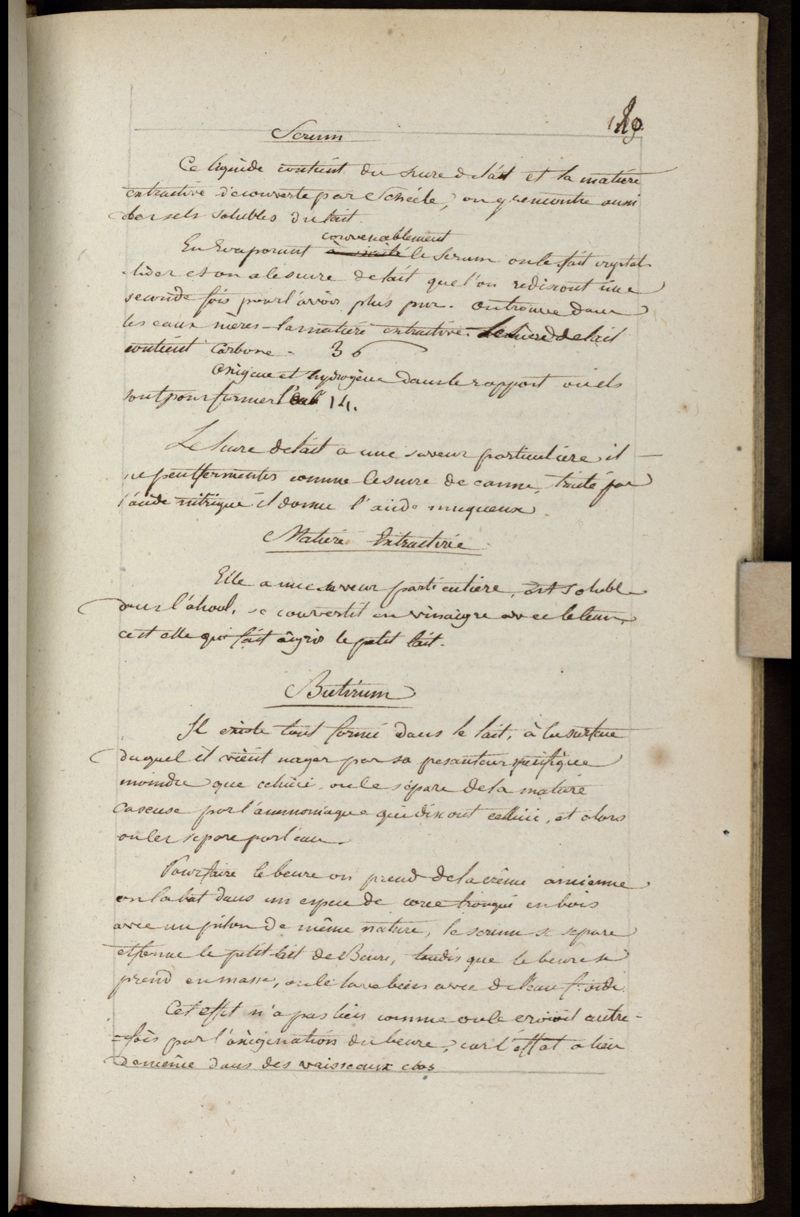 189.
Serum
Ce liquide contient du sucre de lait et la matiere
extractive découverte par Schéele, on y rencontre aussi
des sels solubles du lait.
convenablement
En Evaporant le serum on le fait crystal-
-liser et on a le sucre de lait que l'on redissout une
seconde fois pour l'avoir plus pur. on trouve dans
les eaux mères la matiere extractive. Le sucre de lait
contient carbone. 36
oxigène et hydrogène dans le rapport où ils
sont pour former l'eau 14.
Le sucre de lait a une saveur particulière, il
ne peut fermenter comme le sucre de canne, traité par
l'acide nitrique il donne l'acide muqueux.
Matière Extractive
Elle a une saveur particulière, est soluble
dans l'alcool, se convertit en vinaigre avec le tems,
c'est elle qui fait aigrir le petit lait.
Butirum
Il existe tout formé dans le lait, à la surface
duquel il vient nager par sa pesanteur spécifique
moindre que celui ci. on le sépare de la matière
caseuse par l'ammoniaque qui dissout celle ci, et alors
on les separe par l'eau.
Pour faire le beure on prend de la crême ancienne
on la bat dans un espece de cone tronqué en bois
avec un piston de même nature, le serum se separe
et forme le petit lait de Beure, tandis que le beure se
prend en masse, on le lave bien avec de l'eau froide.
Cet effet n'a pas lieu comme on le croioit autre-
-fois par l'oxigination du beure, car l'effet a lieu
de même dans des vaisseaux clos